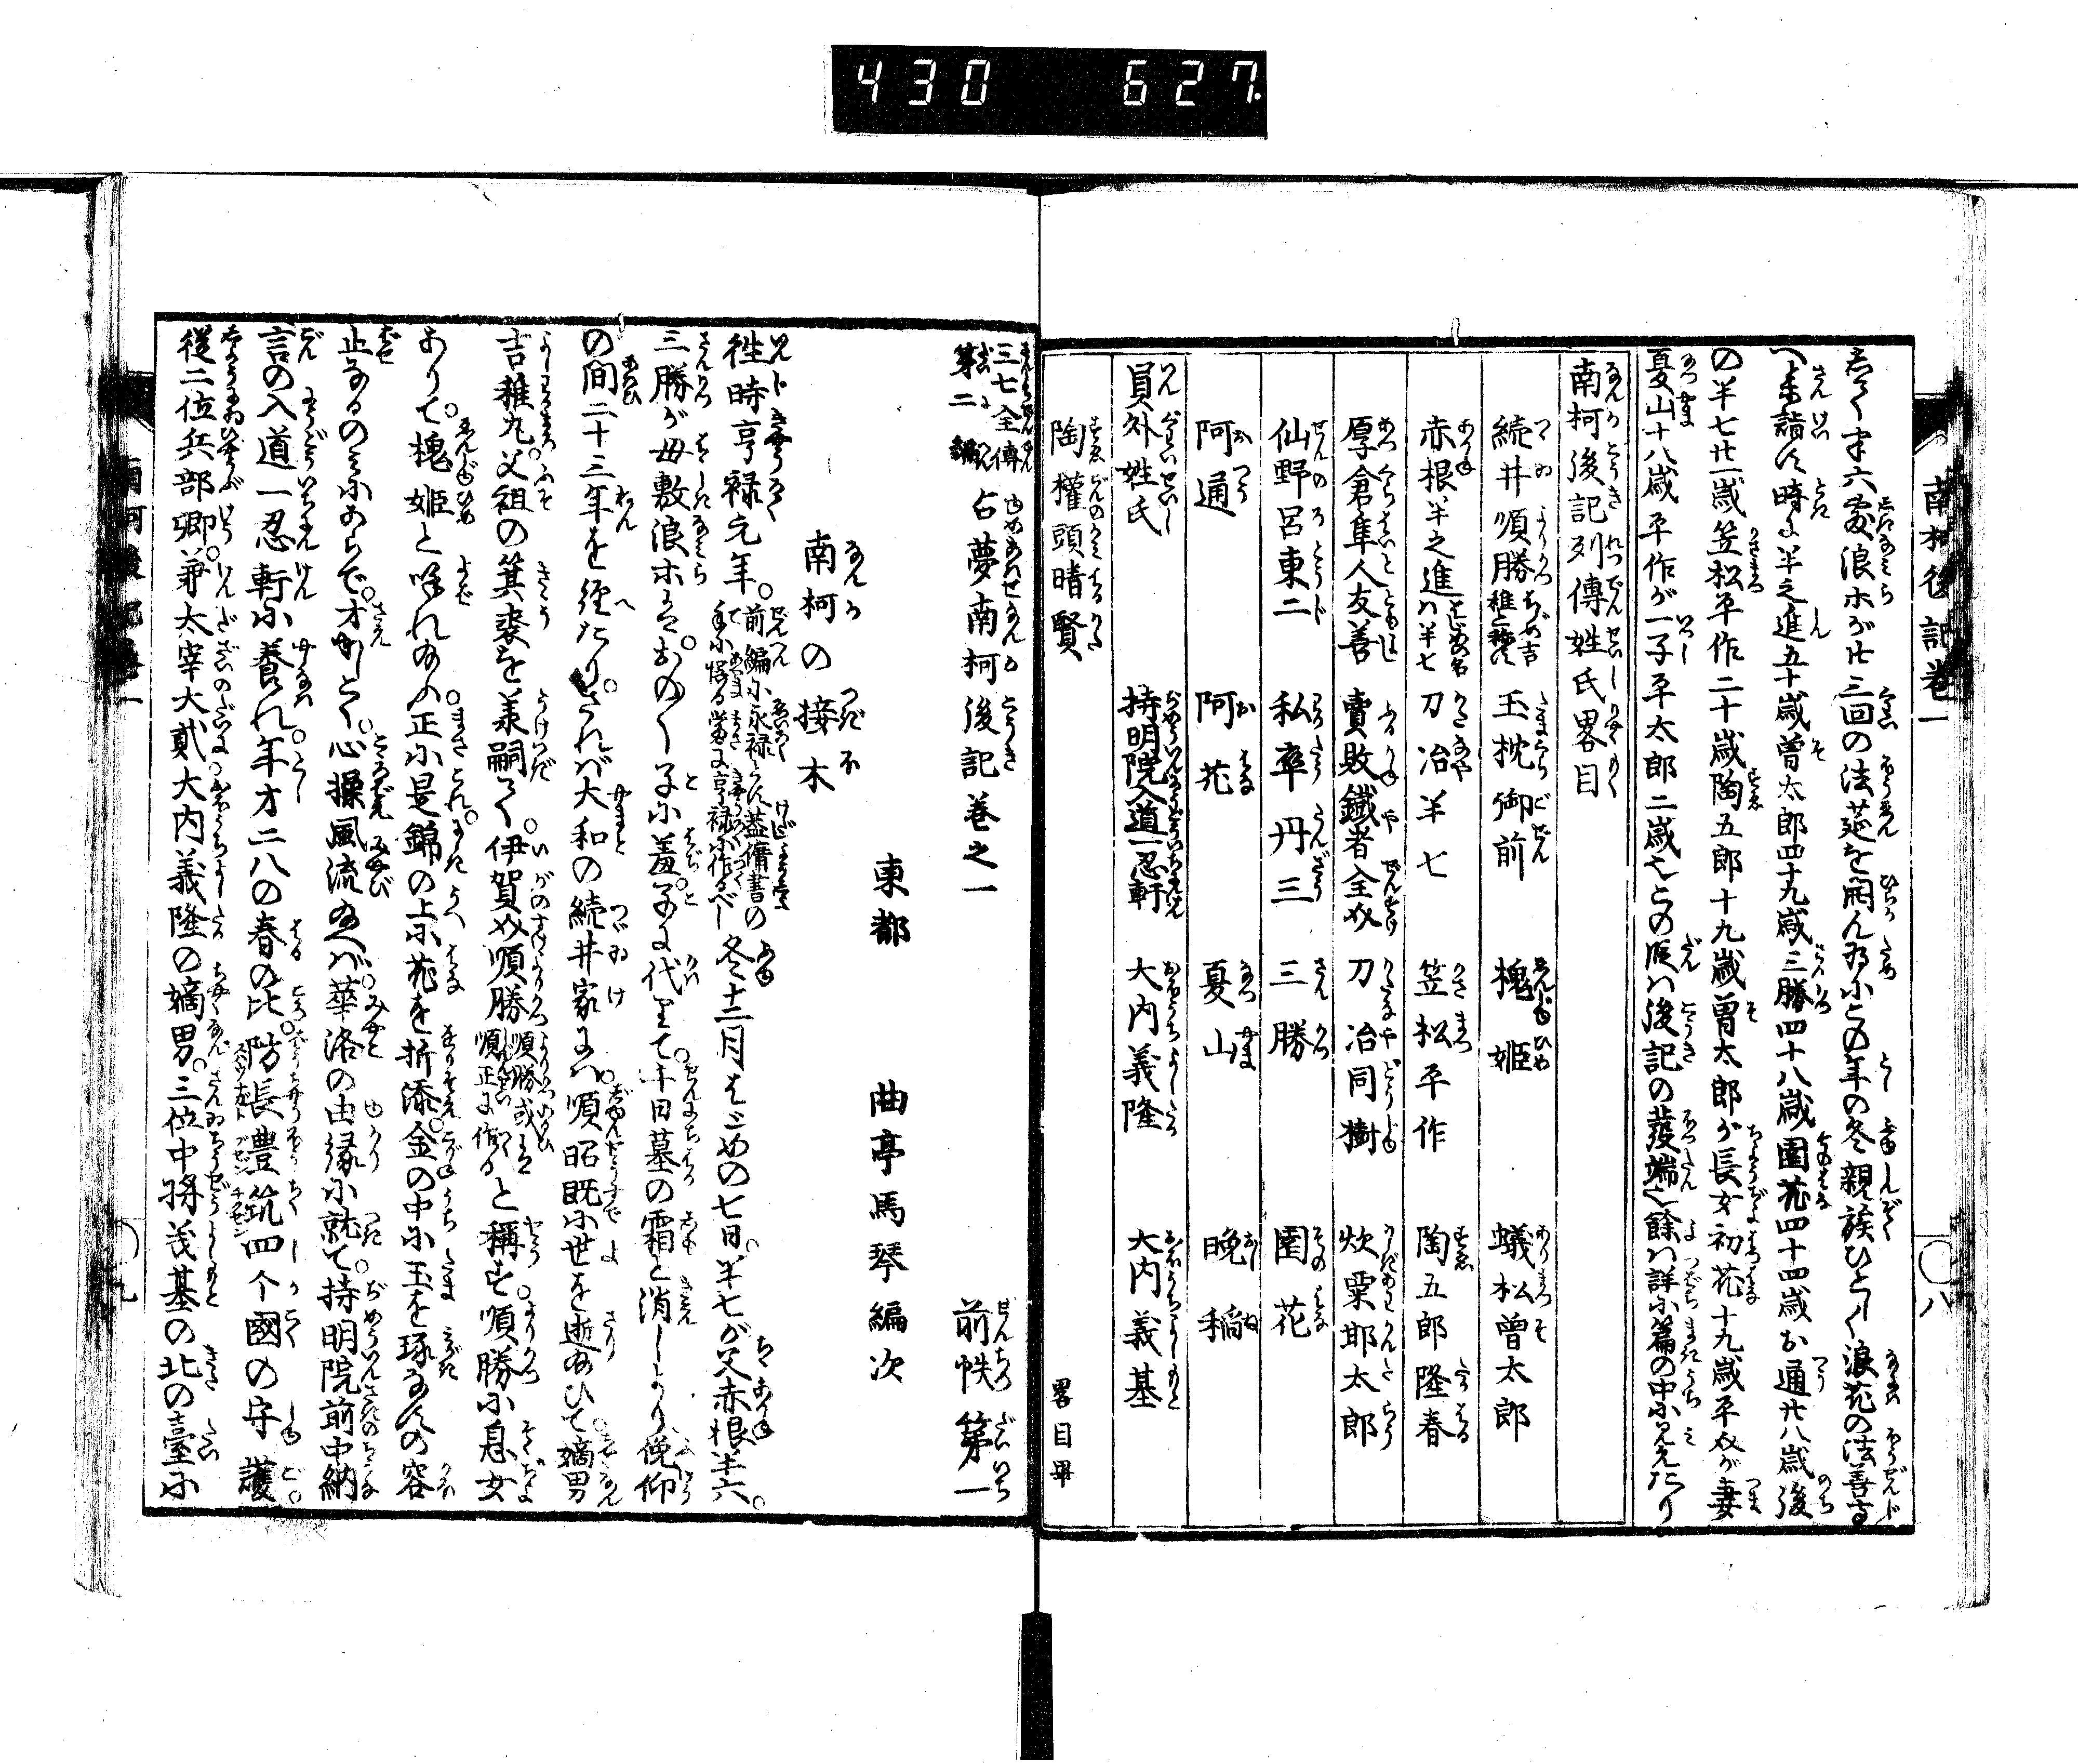 430 627
南柯後記巻一
〇八
さて半六敷浪ホが廿三回の法莚を開ん為にとの年の冬親族ひとしく浪花の法善寺
へ参詣す時に半之進五十歳曽太郎四十九歳三勝四十八歳園花四十四歳お通廿八歳後
の半七廿一歳笠松平作二十歳陶五郎十九歳曽太郎が長女初花十九歳平作が妻
夏山十八歳平作が一子平太郎二歳也との段ハ後記の發端也餘ハ詳に篇の中に見えたり
南柯後記列傳姓氏畧目
続井順勝稚名吉稚丸 玉枕御前 槐姫 蟻松曽太郎
赤根半之進はじめの名ハ半七 刀冶半七 笠松平作 陶五郎隆春
厚倉隼人友善 賣敗鐵者全 刀冶同樹 炊粟耶太郎
仙野呂東二 私卒丹三 三勝 園花
阿通 阿花 夏山 晩稲
員外姓氏 持明院入道一忍軒 大内義隆 大内義基
陶權頭晴賢
畧目畢
三七全傳第二編 占夢南柯後記巻之一 前帙第一
東都 曲亭馬琴編次
南柯の接木
徃時亨禄元年。前編に永禄とす蓋傭書の手に愆る當に亨禄に作るべし 冬十二月はじめの七日。半七が父赤根半六。
三勝が母敷浪ホは。おの〳〵子に羞。子に代りて。千日墓の霜と消しより俛仰
の間二十三年を経たり。されば大和の続井家には。順昭既に世を逝給ひて。嫡男
吉稚丸。父祖の箕裘を羕嗣て。伊賀介順勝 順勝或は順正に作る と稱す。順勝に息女
ありて。槐姫と呼れ給ふ。正に是錦の上に花を折添。金の中に玉を琢なすの容
止なるのみにあらで。才かしこく。心操風流給へば。華洛の由縁に就て。持明院前中納
言の入道一忍軒に養れ。年才二八の春の比。防長豊筑四个國の守護。
從二位兵部卿。兼太宰大貳大内義隆の嫡男。三位中将義基の北の臺に
南柯後記巻一
〇九